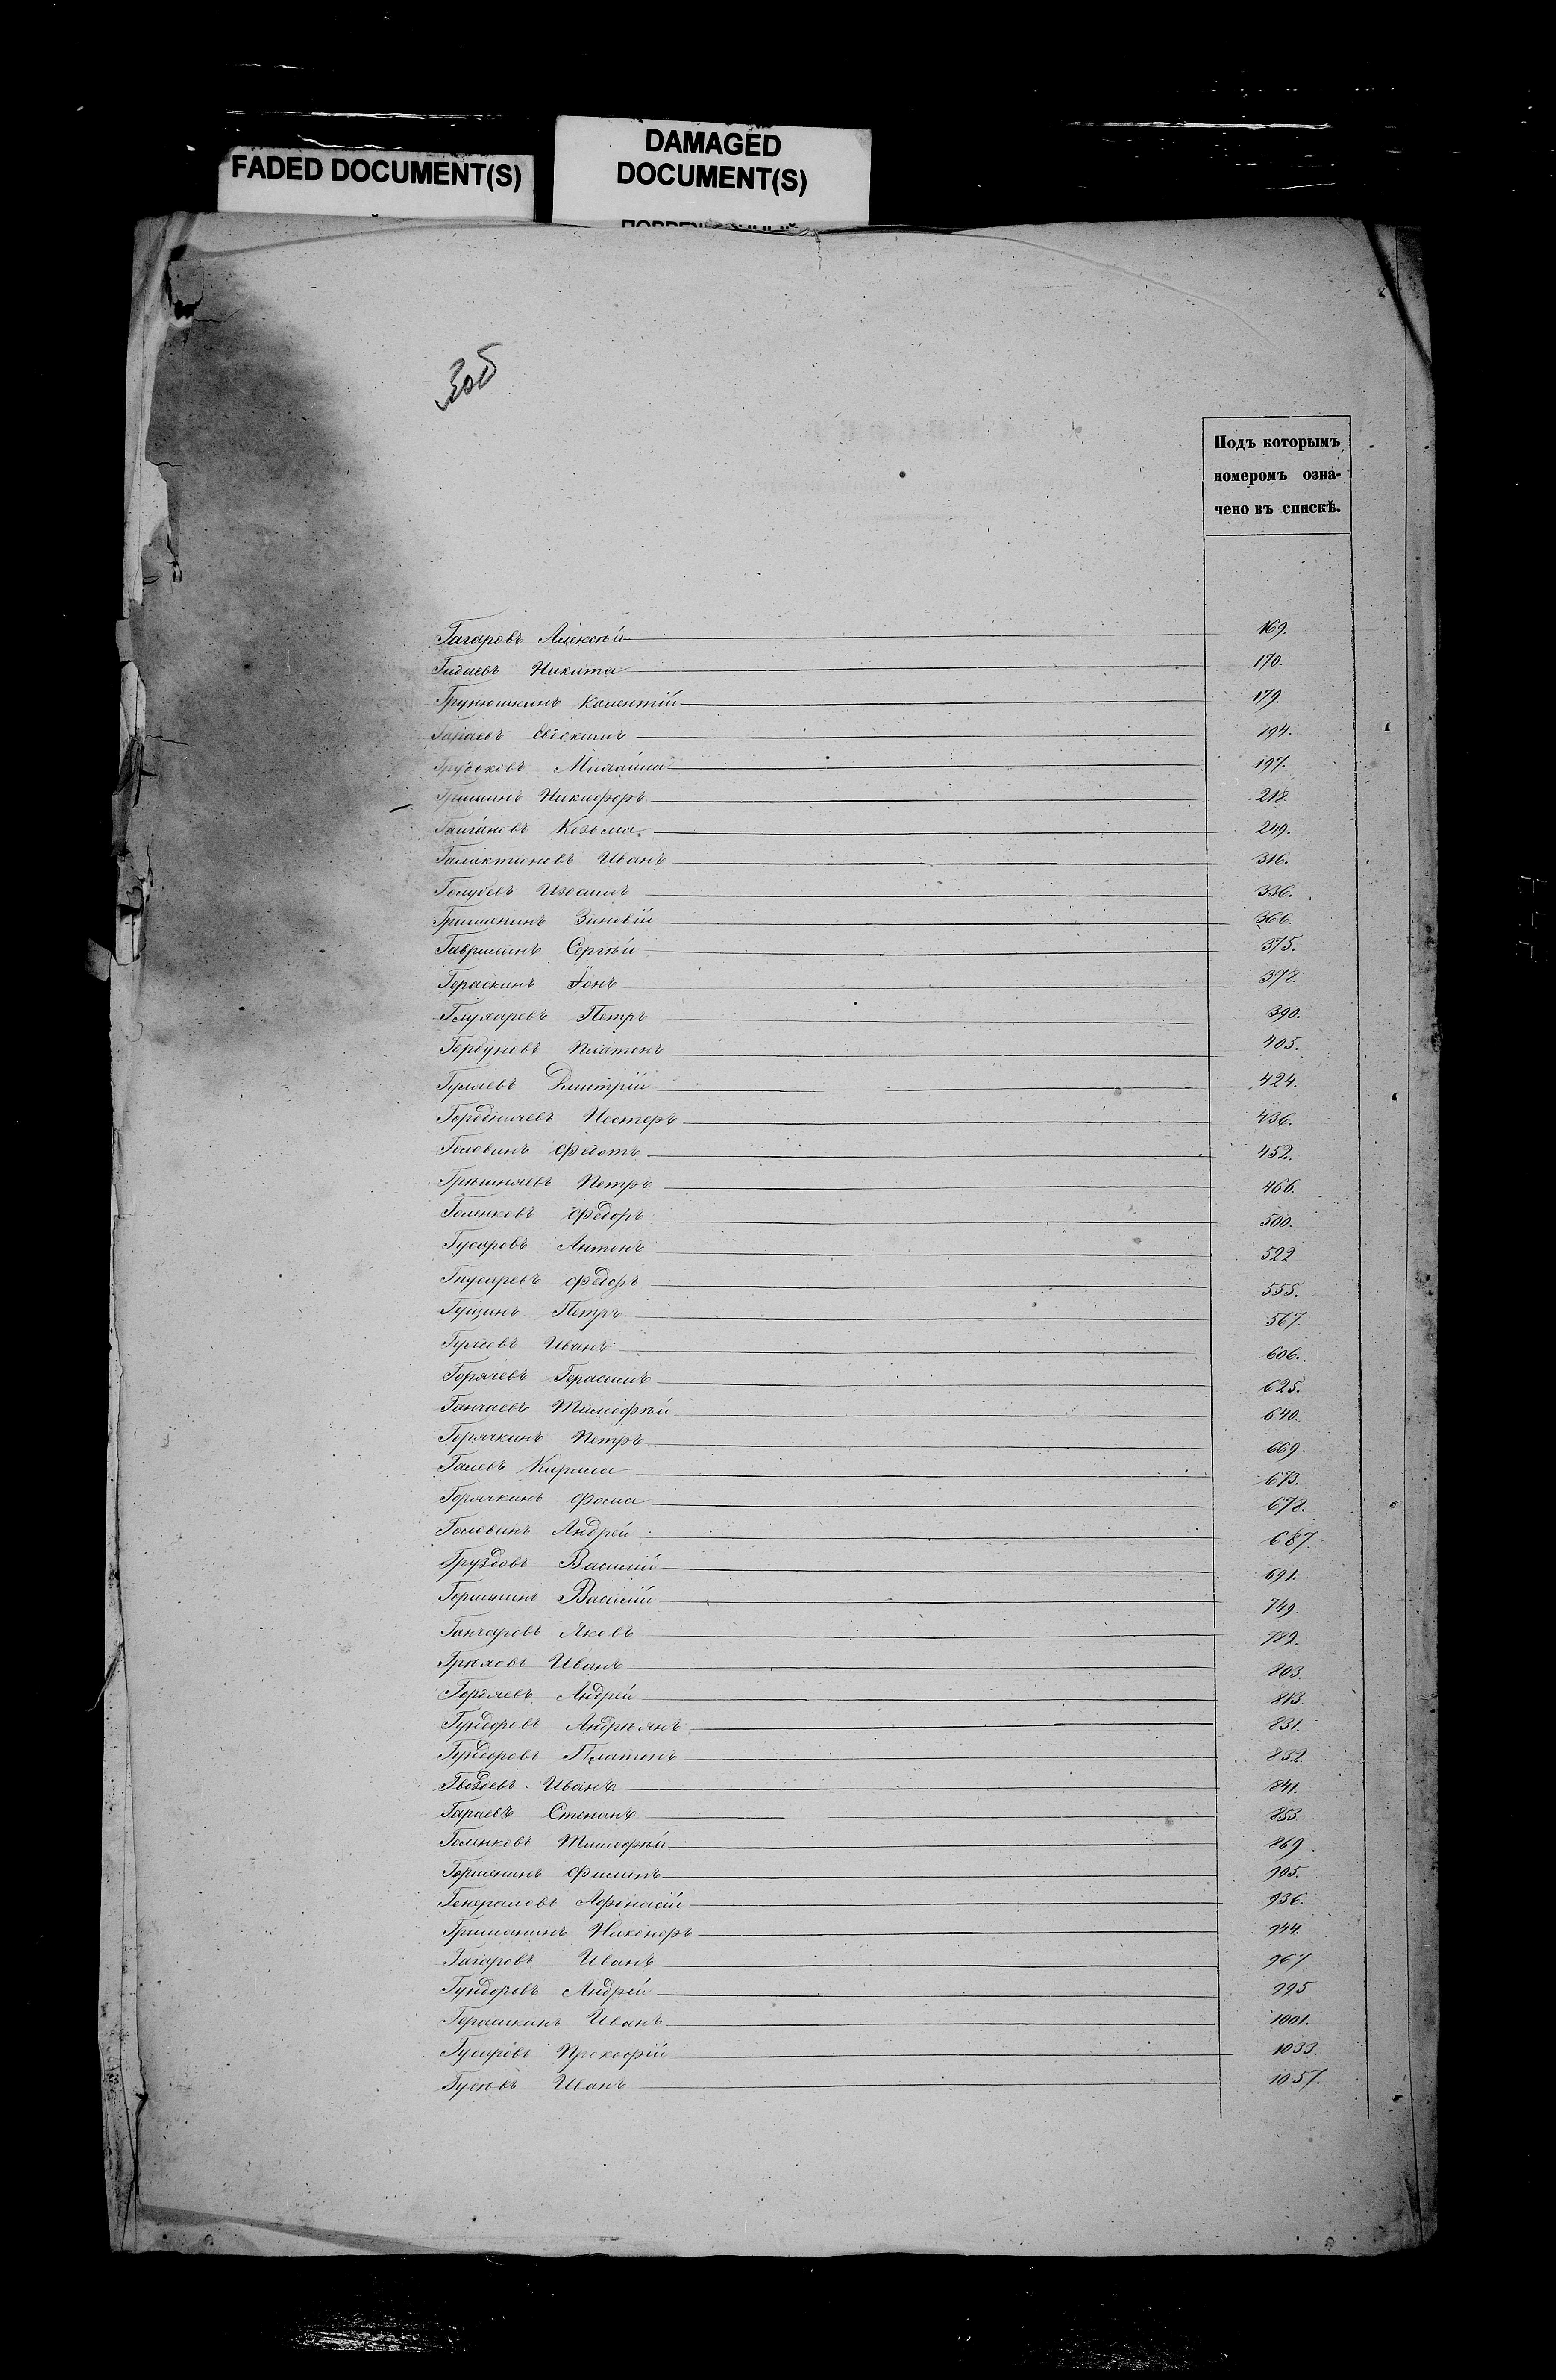 FADED DOCUMENT(S)
DAMAGED
DOCUMENT(S)
306
Подъ которымъ
номеромъ озна-
чено въ спискѣ.
Гагаровъ Алексѣй 169.
Гидаевъ Никита 170.
Грунюшкинъ Калентій 179.
Гараевъ Евдокимъ 194.
197.
Гришинъ Никифоръ 218.
Гайгановъ Козьма 249.
Галактионовъ Иванъ 316.
Голубевъ Изосимъ 336.
Гришанинъ Зиновій 366.
Гаврилинъ Сергѣй 375.
Гераскинъ Іонъ 378.
Глухаревъ Петръ 390.
Горбуновъ Платонъ 405.
Гуляевъ Дмитрій 424.
Несторъ 436.
Головинъ Федотъ 452.
Грѣшняевъ Петръ 466.
Голенковъ Федоръ 500.
Гусаровъ Антонъ 522
Гнусаревъ Федоръ 555.
Гущинъ Петръ 567.
Иванъ 606.
Горячевъ Герасимъ 625.
Ганчаевъ Тимофѣй 640.
Горячкинъ Петръ 669.
Галевъ Кирила 673.
Горячкинъ Фома 678.
Головинъ Андрей 687.
Груздовъ Василій 691.
Горшинъ Василій 749.
Ганчаровъ Яковъ 782.
Грѣховъ Иванъ 803.
Андрей 813.
Гундоровъ Андрѣянъ 831.
Гундоровъ Платонъ 832.
Гвоздевъ Иванъ 841.
Гараевъ Степанъ 853.
Голенковъ Тимофѣй 869.
Горшенинъ Филипъ 905.
Генераловъ Афонасій 936.
Гришанинъ Никоноръ 944.
Гагаровъ Иванъ 967
Гундоровъ Андрей 995
Герашкинъ Иванъ 1001.
Гусаровъ Прокофій 1033.
Гусѣвъ Иванъ 1057.